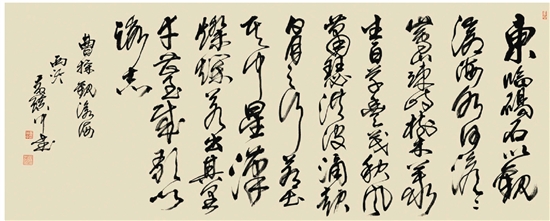 東臨碣石以觀
滄海水何澹〻
山島竦峙樹木叢
生百草豐茂秋風
蕭瑟洪波涌起
日月之行若出
其中星漢
燦爛若出其里
幸甚至哉歌以
詠志
曹操觀滄海